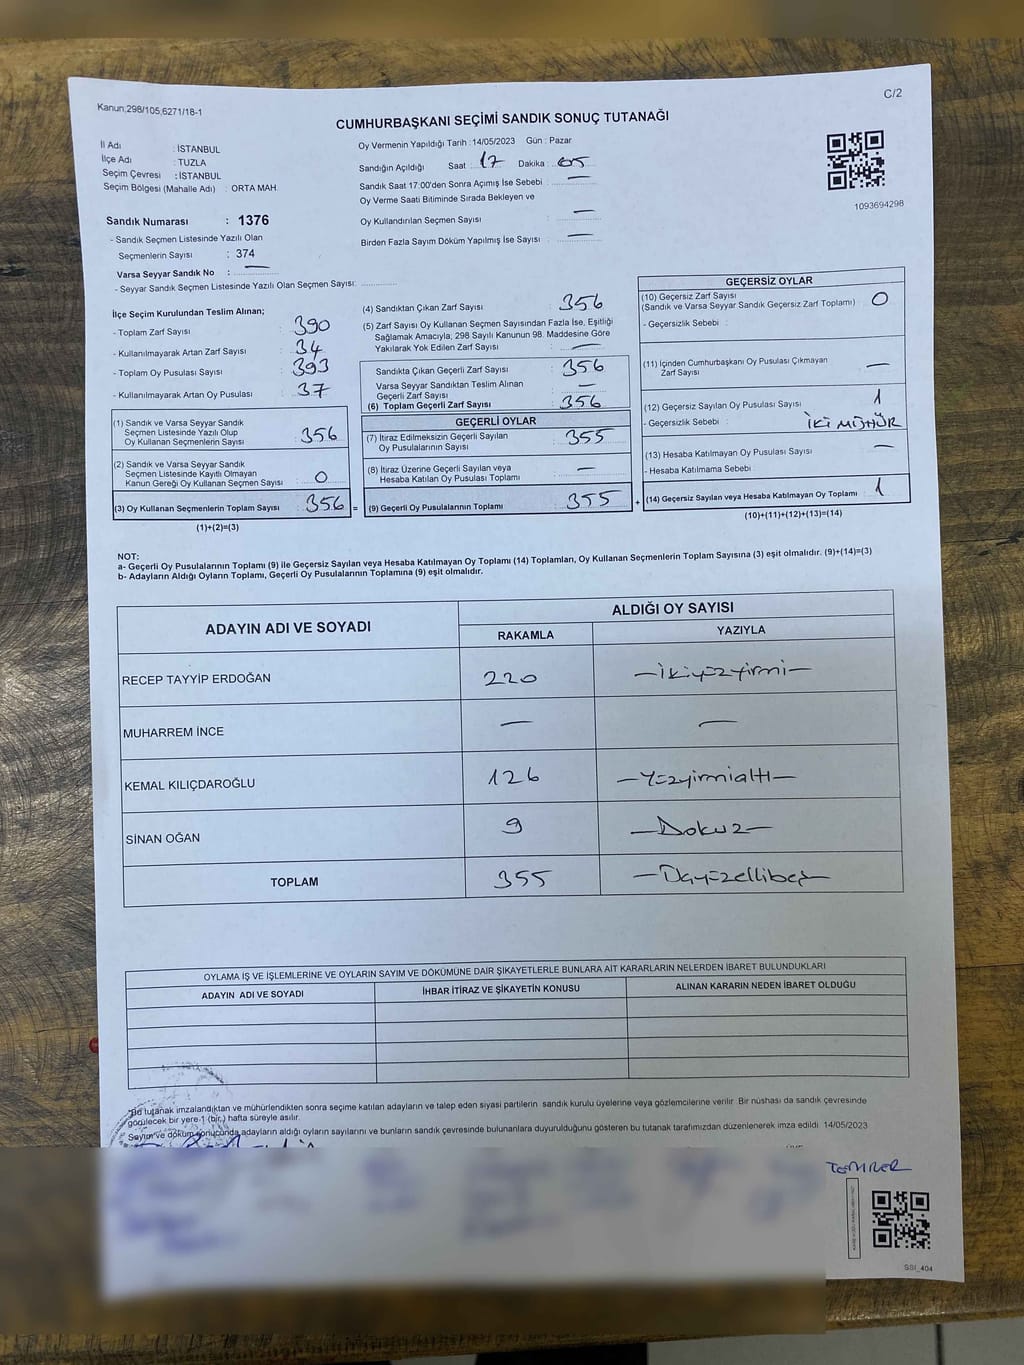 Kanun;298/105,6271/18-1
C/2
CUMHURBAŞKANI SEÇİMİ SANDIK SONUÇ TUTANAĞI
İl Adı : İSTANBUL
İlçe Adı : TUZLA
Seçim Çevresi : İSTANBUL
Seçim Bölgesi (Mahalle Adı) : ORTA MAH.
Sandık Numarası : 1376
- Sandık Seçmen Listesinde Yazılı Olan
Seçmenlerin Sayısı : 374
Varsa Seyyar Sandık No : —
- Seyyar Sandık Seçmen Listesinde Yazılı Olan Seçmen Sayısı: ..............
Oy Vermenin Yapıldığı Tarih : 14/05/2023 Gün : Pazar
Sandığın Açıldığı Saat : 17 Dakika : 05
Sandık Saat 17:00'den Sonra Açımış İse Sebebi : —
Oy Verme Saati Bitiminde Sırada Bekleyen ve
Oy Kullandırılan Seçmen Sayısı : —
Birden Fazla Sayım Döküm Yapılmış İse Sayısı : —
1093694298
İlçe Seçim Kurulundan Teslim Alınan;
- Toplam Zarf Sayısı : 390
- Kullanılmayarak Artan Zarf Sayısı : 34
- Toplam Oy Pusulası Sayısı : 393
- Kullanılmayarak Artan Oy Pusulası : 37
(1) Sandık ve Varsa Seyyar Sandık
Seçmen Listesinde Yazılı Olup
Oy Kullanan Seçmenlerin Sayısı : 356
(2) Sandık ve Varsa Seyyar Sandık
Seçmen Listesinde Kayıtlı Olmayan
Kanun Gereği Oy Kullanan Seçmen Sayısı : 0
(3) Oy Kullanan Seçmenlerin Toplam Sayısı : 356 =
(1)+(2)=(3)
(4) Sandıktan Çıkan Zarf Sayısı : 356
(5) Zarf Sayısı Oy Kullanan Seçmen Sayısından Fazla İse, Eşitliği
Sağlamak Amacıyla, 298 Sayılı Kanunun 98. Maddesine Göre
Yakılarak Yok Edilen Zarf Sayısı : —
Sandıkta Çıkan Geçerli Zarf Sayısı : 356
Varsa Seyyar Sandıktan Teslim Alınan
Geçerli Zarf Sayısı : —
(6) Toplam Geçerli Zarf Sayısı : 356
GEÇERLİ OYLAR
(7) İtiraz Edilmeksizin Geçerli Sayılan
Oy Pusulasının Sayısı : 355
(8) İtiraz Üzerine Geçerli Sayılan veya
Hesaba Katılan Oy Pusulası Toplamı : —
(9) Geçerli Oy Pusulalarının Toplamı : 355 +
GEÇERSİZ OYLAR
(10) Geçersiz Zarf Sayısı
(Sandık ve Varsa Seyyar Sandık Geçersiz Zarf Toplamı) : 0
- Geçersizlik Sebebi :
(11) İçinden Cumhurbaşkanı Oy Pusulası Çıkmayan
Zarf Sayısı : —
(12) Geçersiz Sayılan Oy Pusulası Sayısı : 1
- Geçersizlik Sebebi : İKİ MÜHÜR
(13) Hesaba Katılmayan Oy Pusulası Sayısı : —
- Hesaba Katılmama Sebebi
(14) Geçersiz Sayılan veya Hesaba Katılmayan Oy Toplamı : 1
(10)+(11)+(12)+(13)=(14)
NOT:
a- Geçerli Oy Pusulalarının Toplamı (9) ile Geçersiz Sayılan veya Hesaba Katılmayan Oy Toplamı (14) Toplamları, Oy Kullanan Seçmenlerin Toplam Sayısına (3) eşit olmalıdır. (9)+(14)=(3)
b- Adayların Aldığı Oyların Toplamı, Geçerli Oy Pusulalarının Toplamına (9) eşit olmalıdır.
ADAYIN ADI VE SOYADI
ALDIĞI OY SAYISI
RAKAMLA YAZIYLA
RECEP TAYYİP ERDOĞAN 220 —İkiyüzyirmi—
MUHARREM İNCE — —
KEMAL KILIÇDAROĞLU 126 —Yüzyirmialtı—
SİNAN OĞAN 9 —Dokuz—
TOPLAM 355 —Üçyüzellibeş—
OYLAMA İŞ VE İŞLEMLERİNE VE OYLARIN SAYIM VE DÖKÜMÜNE DAİR ŞİKAYETLERLE BUNLARA AİT KARARLARIN NELERDEN İBARET BULUNDUKLARI
ADAYIN ADI VE SOYADI İHBAR İTİRAZ VE ŞİKAYETİN KONUSU ALINAN KARARIN NEDEN İBARET OLDUĞU
"Bu tutanak imzalandıktan ve mühürlendikten sonra seçime katılan adayların ve talep eden siyasi partilerin sandık kurulu üyelerine veya gözlemcilerine verilir. Bir nüshası da sandık çevresinde
görülecek bir yere 1 (bir) hafta süreyle asılır.
Sayım ve döküm sonucunda adayların aldığı oyların sayılarını ve bunların sandık çevresinde bulunanlara duyurulduğunu gösteren bu tutanak tarafımızdan düzenlenerek imza edildi. 14/05/2023
SSI_404